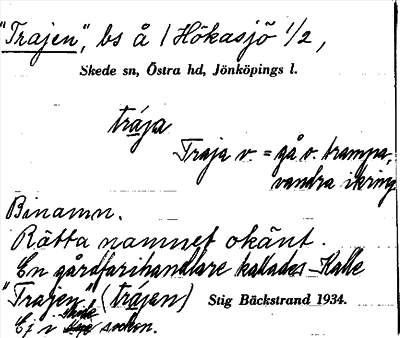 "Trajen", bs å / Hökasjö 1/2,
Skede sn, Östra hd, Jönköpings l.
trája
Traja v. = gå o. trampa,
vandra ikring
Binamn.
Rätta namnet okänt.
En gårdfarihandlare kallades Kalle
"Trajen" (trájen) Stig Bäckstrand 1934.
Ej i socken.